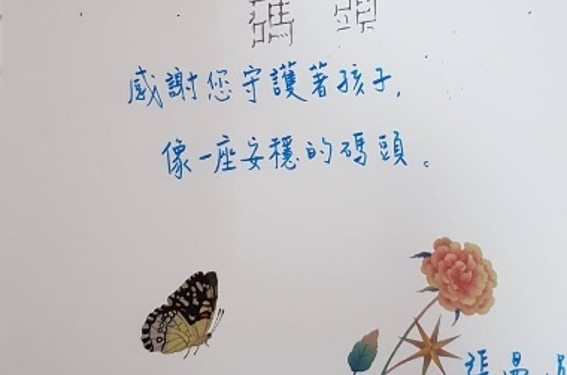 碼頭
感謝您守護著孩子,
像一座安穩的碼頭。
張